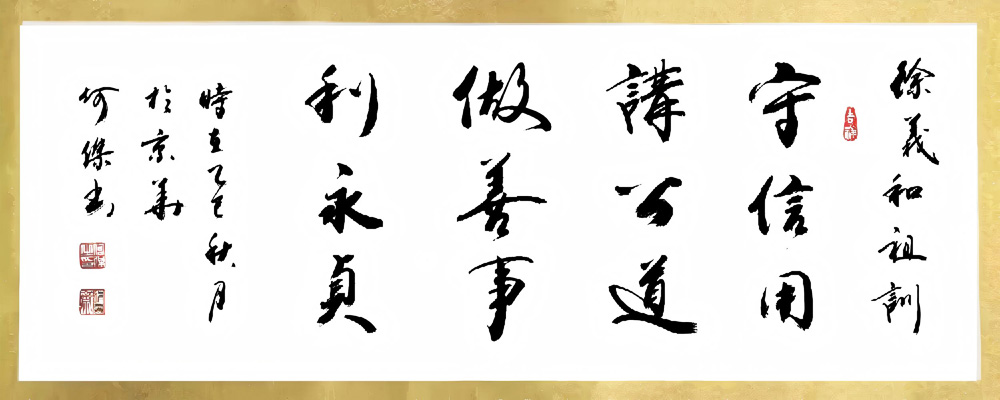 徐義和祖訓
守信用
講公道
做善事
利永貞
時在乙巳秋月
於京華
何傑书